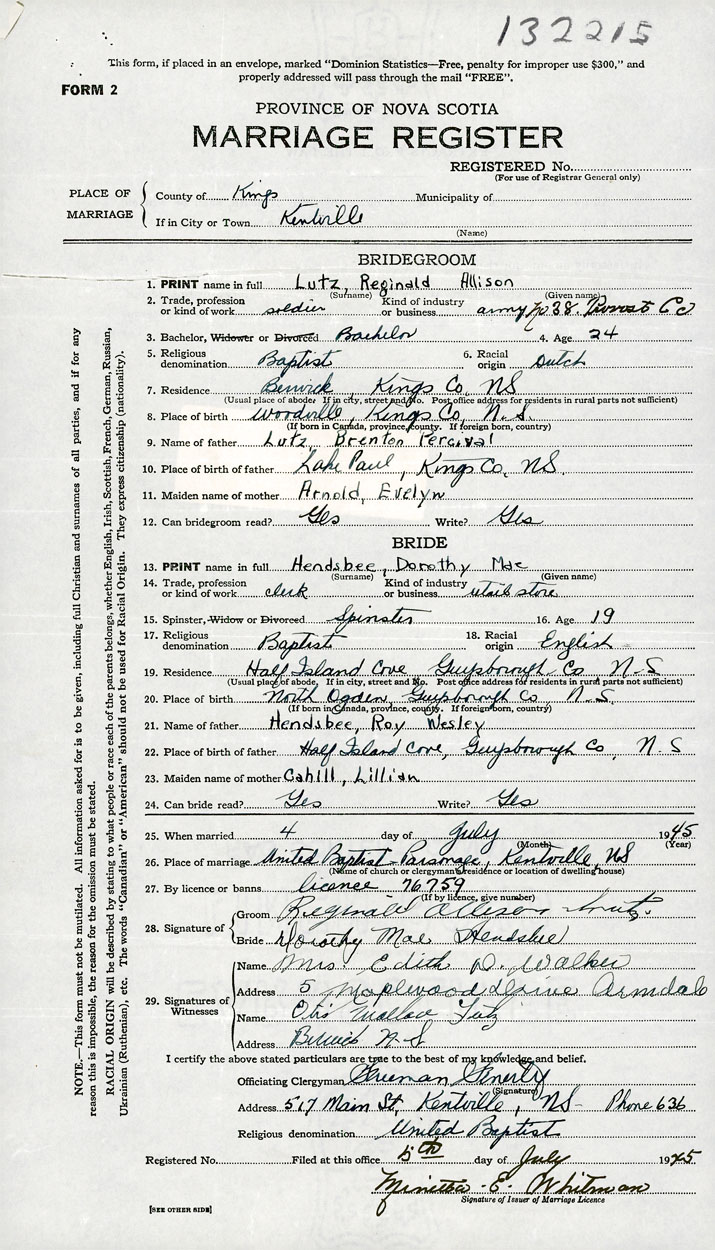 132215
This form, if placed in an envelope, marked "Dominion Statistics—Free, penalty for improper use $300," and
properly addressed will pass through the mail "FREE".
FORM 2
PROVINCE OF NOVA SCOTIA
MARRIAGE REGISTER
REGISTERED No.
(For use of Registrar General only)
PLACE OF MARRIAGE
County of Kings Municipality of
If in City or Town Kentville
(Name)
BRIDEGROOM
1. PRINT name in full Lutz, Reginald Allison
(Surname) (Given name)
2. Trade, profession or kind of work soldier Kind of industry or business army No 38. Provost Co
3. Bachelor, Widower or Divorced Bachelor 4. Age 24
5. Religious denomination Baptist 6. Racial origin Dutch
7. Residence Berwick, Kings Co, NS
(Usual place of abode. If in city, street and No. Post office address for residents in rural parts not sufficient)
8. Place of birth Woodville, Kings Co, N.S.
(If born in Canada, province, county. If foreign born, country)
9. Name of father Lutz, Brenton Percival
10. Place of birth of father Lake Paul, Kings Co, NS.
11. Maiden name of mother Arnold, Evelyn
12. Can bridegroom read? Yes Write? Yes
BRIDE
13. PRINT name in full Hendsbee, Dorothy Mae
(Surname) (Given name)
14. Trade, profession or kind of work clerk Kind of industry or business retail store
15. Spinster, Widow or Divorced Spinster 16. Age 19
17. Religious denomination Baptist 18. Racial origin English
19. Residence Half Island Cove, Guysborough Co N-S
(Usual place of abode, If in city, street and No. Post office address for residents in rural parts not sufficient)
20. Place of birth North Ogden, Guysborough Co, N.S.
(If born in Canada, province, county. If foreign born, country)
21. Name of father Hendsbee, Roy Wesley
22. Place of birth of father Half Island Cove, Guysborough Co, N.S
23. Maiden name of mother Cahill, Lillian
24. Can bride read? Yes Write? Yes
25. When married 4 day of July 1945
(Month) (Year)
26. Place of marriage United Baptist Parsonage, Kentville, NS
(Name of church or clergyman's residence or location of dwelling house)
27. By licence or banns licence 76759
(If by licence, give number)
28. Signature of
Groom Reginald Allison Lutz.
Bride Dorothy Mae Hendsbee
29. Signatures of Witnesses
Name Mrs. Edith D. Walker
Address 5 Maplewood Drive Armdale
Name Otis Wallace Lutz
Address Berwick N-S
I certify the above stated particulars are true to the best of my knowledge and belief.
Officiating Clergyman Freeman Fenerty
(Signature)
Address 517 Main St, Kentville, NS- Phone 636
Religious denomination United Baptist
Registered No. Filed at this office 5th day of July 1945
Minetta E. Whitman
Signature of Issuer of Marriage Licence
[SEE OTHER SIDE]
NOTE.—This form must not be mutilated. All information asked for is to be given, including full Christian and surnames of all parties, and if for any
reason this is impossible, the reason for the omission must be stated.
RACIAL ORIGIN will be described by stating to what people or race each of the parents belongs, whether English, Irish, Scottish, French, German, Russian,
Ukrainian (Ruthenian), etc. The words "Canadian" or "American" should not be used for Racial Origin. They express citizenship (nationality).